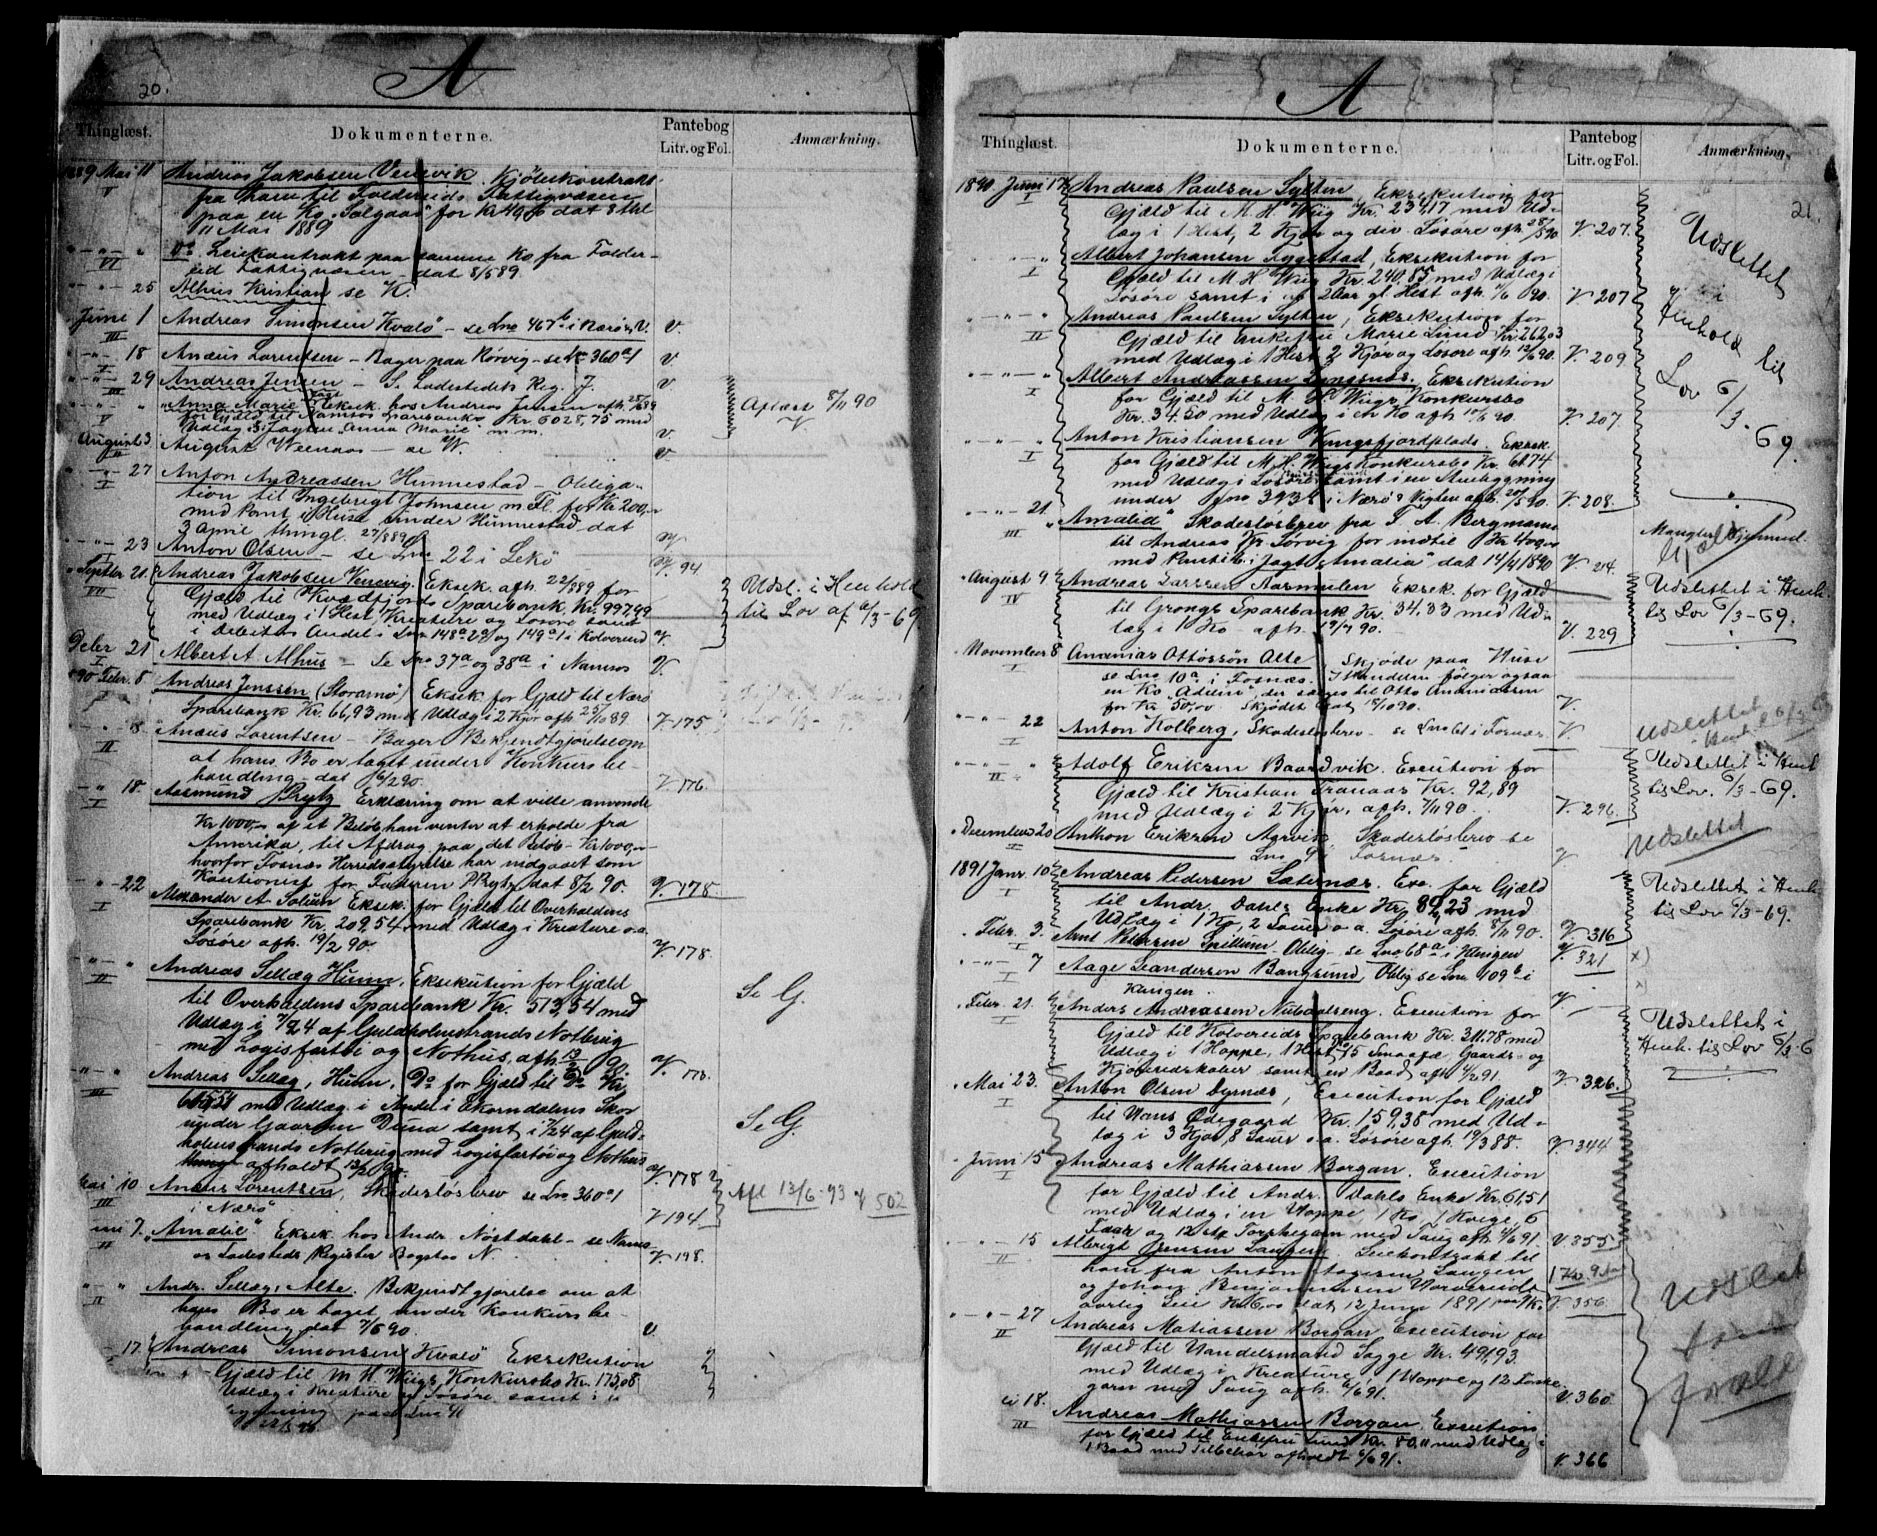 20.
A
Thinglæst.
Dokumenterne.
Pantebog
Litr. og Fol.
Anmærkning.
1889 Mai 11 Andrias Jakobsen Vennvik. Kjøbekontrakt
V fra ham til Foldereids Fattigvæsen
paa en Ko "Solgaas" for Kr 49,50 dat 3 Thl
11 Mai 1889
VI Do Leiekontrakt paa samme Ko fra Folder-
eid Fattigvæsen - dat 8/5 89.
25 Alhus Kristian se K.
Juni 1 Andreas Simonsen Kvalø - se Lno 467b i Nærø, V. V.
III
18 Anæus Lorentsen - Bager paa Rørvig - se No 360a1 V.
29 Andreas Jensen - Se Ladestedets Reg. J. V
III
"Anna Marie" Jagt Eksek. hos Andreas Jensen afh. 25/6 89
V for Gjæld til Namsos Sparebank Kr. 6025,75 med
Udlæg i Jagten "Anna Marie" m.m. V.
Aflæst 8/11 90
August 3 August Weenaas - se W. V
27 Anton Andreassen Hunnestad - Obliga-
tion til Ingebrigt Johnsen m Fl. for Kr 200,-
med Pant i Huse under Hunnestad dat
3 April thingl. 27/8 89 V
23 Anton Olsen - se Lno 22 i Lekø V. 94
Septbr 21. Andreas Jakobsen Vennevig. Eksek. afh. 22/8 89 for
VII Gjæld til Kvædfjords Sparebank, Kr. 997,49
med Udlæg i 1 Hest, Kreature og Løsøre samt
i Debitors Andel i Lno 148a 2a og 149a1 i Kolvereid V.
Udsl. i Henhold
til Lov af 6/3-69
Deber 21 Albert A. Alhus - Se Lno 37a og 38a i Namsos V.
I
1890 Febr. 8 Andreas Jenssen (Storamø) Eksek. for Gjæld til Nærø
Sparebank Kr. 66,93 med Udlæg i 2 Kjør afh. 25/10 89 V. 175
8. Anæus Lorentsen - Bager Bekjendtgjørelse om
II at hans Bo er taget under Konkursbe-
handling - dat 6/2 90. V. 176.
18. Aasmund Prytz Erklæring om at ville anvende
I Kr 1000,- af et Beløb, han venter at erholde fra
Amerika, til Afdrag paa det Beløb - Kr 1000,-
hvorfor Fosnæs Herredsstyrelse har indgaaet som
Kautionist for Faderen P Prytz dat 8/2 90. V. 178
22 Alexander A. Solum Eksek. for Gjæld til Overhaldens
I Sparebank Kr. 209,54 med Udlæg i Kreature o.a.
Løsøre afh. 19/2 90. V. 178.
Andreas Sellæg Hunn, Eksekution for Gjæld
II til Overhaldens Sparebank Kr. 513,54 med
Udlæg i 7/24 af Guldholmstrands Notbrug
med Logisfartøi og Nothus, afh. 13/2 90. V. 178.
Se G.
Andreas Sellæg, Hunn, Do for Gjæld til Do Kr.
III med Udlæg i Andel i Skorndalens Skov
under Gaarden Duna samt i 7/24 af Guld-
holmstrands Notbrug med Logisfartøi og Nothus
afholdt 13/2 90. V. 178
Se G.
Mai 10 Anæus Lorentsen, Skadesløsbrev se Lno 360a1
III i Nærø V. 194
Afl 13/6-93 V 502
Juni 7. "Amalie". Eksek. hos Andr. Nøstdahl - se Namsos
II Ladesteds Register Bogstav N. V. 198.
Andr. Sellæg, Alte. Bekjendtgjørelse om at
II hans Bo er taget under Konkursbe
handling dat 7/6 90. V.
17. Andreas Simonsen Kvalø Eksekution
Gjæld til M H Wiigs Konkursbo Kr. 173,08
Udlæg i Kreature og Løsøre samt i
paa Lno 41
A
21.
Thinglæst.
Dokumenterne.
Pantebog
Litr. og Fol.
Anmærkning.
1890 Juni 17 Andreas Paulsen Sylten Eksekution for
I Gjæld til M. H. Wiig Kr. 234,17 med Ud-
læg i 1 Hest, 2 Kjør og div. Løsøre afh. 28/5 90 V. 207.
Albert Johansen Fyggestad, Eksekution for
I Gjæld til M. H. Wiig Kr. 240,85 med Udlæg i
Løsøre samt i en 2 Aar gl. Hest afh. 7/6 90. V. 207
Andreas Paulsen Sylten, Eksekution for
II Gjæld til Enkefru Marie Lund Kr. 262,03
med Udlæg i 1 Hest 2 Kjør og Løsøre afh. 12/6 90. V. 209
Albert Andreassen Eksekution
I for Gjæld til M. H. Wiigs Konkursbo
Kr. 34.50 med Udlæg i en Ko afh 10/6 90. V. 207.
Anton Kristiansen Kongsfjordplads. Eksek.
I for Gjæld til M. H. Wiigs Konkursbo Kr. 61.74
med Udlæg i Løsøre samt i en Stuebygning
under i Nærø & Vigten afh. 20/5 90. V. 208.
Udslettet
i
Henhold til
Lov 6/
3.
69.
21. "Amalia" Skadesløsbrev fra F. A. Bergmann
III til Andreas Kr Sørvig for indtil Kr 400,00
med Panteret i Jagt "Amalia" dat 14/4 1890 V. 214.
Mangler Hjemmel.
Gjæld
August 9 Andreas Larssen Aarmulen Eksek. for Gjæld
IV til Grongs Sparebank Kr. 34.33 med Ud-
læg i 1 Ko - afh. 19/7 90. V. 229
Udslettet i Henh.
til Lov 6/3-69.
November 8 Ananias Ottossøn Alte, Skjøde paa Huse
I se Lno 10a i Fosnæs. I Handelen følger ogsaa
en Ko "Adlein", der sælges til Otto Ananiassen
for Kr 50,00 Skjødet dat 18/10 90. V.
22 Anton Kolberg, Skadesløsbrev - se Lno 61 i Fosnæs V
I
Udslettet
Adolf Eriksen Baardvik. Execution for
II Gjæld til Kristian Tranaas Kr. 92,89
med Udlæg i 2 Kjør, afh. 7/11 90. V. 296.
Udslettet i Henh
til Lov. 6/3-69.
December 20 Anthon Eriksen Aarvik, Skadesløsbrev se
I Lno 91 Fosnæs V
Udslettet
1891 Janr. 10 Andreas Pedersen Sæternæs. Exe. for Gjæld
I til Andr. Dahls Enke Kr. 89,23 med
Udlæg i 1 Ko, 2 Sauer o.a. Løsøre afh. 8/11 90. V. 316
Udslettet i Henh
til Lov 6/3-69.
Febr. 3. Arnt Pedersen Spillum. Oblig. - se Lno 68a i Klingen V. 321 x)
I
7 Aage Leandersen Bangsund, Oblig se Lno 109b i
Klingen. V.
Febr. 21. Anders Andreassen Nubdalseng. Execution for
I Gjæld til Kolvereids Sparebank Kr. 311.78 med
Udlæg i 1 Hoppe, 1 Hest, 15 Smaafæ, Gaards- og
Kjøreredskaber samt en Baad afh 4/2 91. V. 326.
Udslettet i
Henh. til Lov 6/3-6
Mai 23. Anton Olsen Dyrnæs, Execution for Gjæld
I til Hans Ødegaard Kr. 159,38 med Ud-
læg i 3 Kjør, 8 Sauer o.a. Løsøre afh. 19/3 88. V. 344
Juni 15 Andreas Mathiassen Borgan. Execution
I for Gjæld til Andr. Dahls Enke Kr. 61,51
med Udlæg i en Hoppe, 1 Ko, 1 Kvige, 6
Faar og 12 stk. Torskegarn med Taug afh. 4/6 91 V. 355
15 Albrigt Jensen Laugen. Leiekontrakt til
II ham fra Anton Laugen
og Johan Benjaminsen Varøreide
aarlig Leie Kr 6,00 dat 12 Juni 1891 V. 356.
27 Andreas Matiassen Borgan Execution for
II Gjæld til Handelsmand Sagge Kr. 49,93
med Udlæg i Kreature, 1 Hoppe og 12 Torske-
garn med Taug afh. 6/6 91. V. 360.
18. Andreas Mathiassen Borgan. Execution
III for Gjæld til Enkefru Lund Kr. 80,11 med Udlæg i
1 Baad med Tilbehør afholdt 6/6 91. V. 366
Udslet